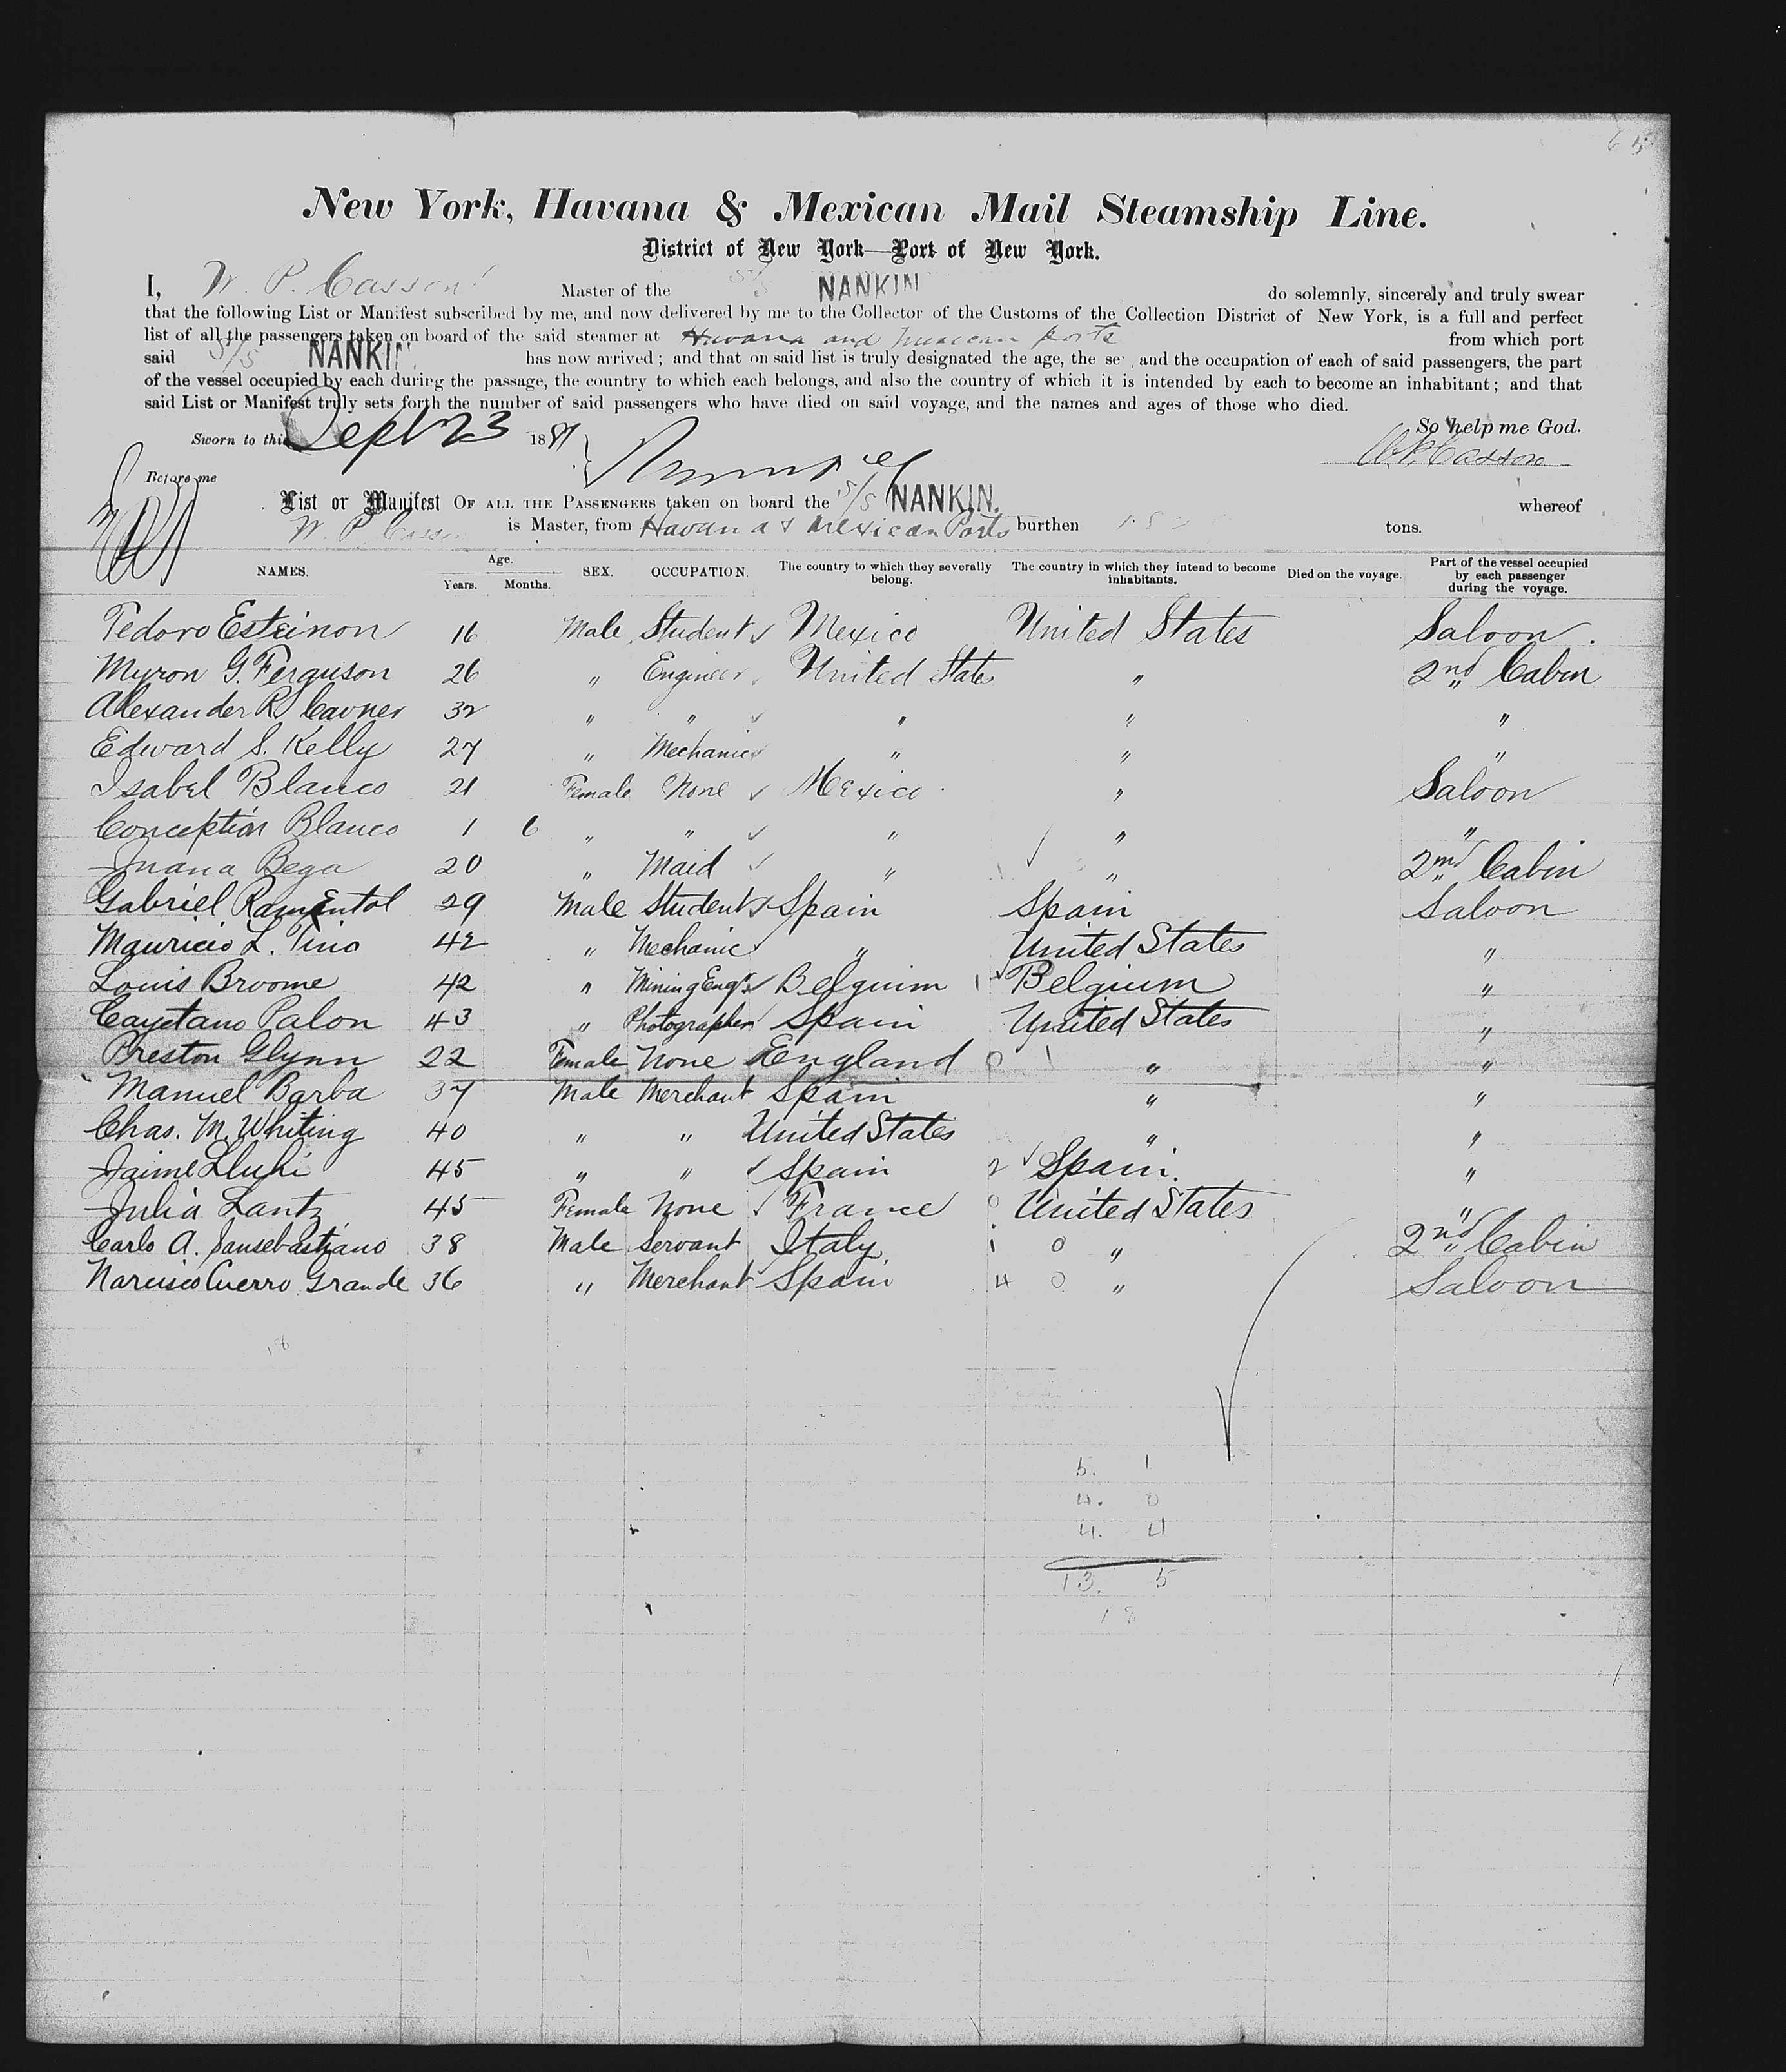 New York, Havana & Mexican Mail Steamship Line.
District of New York—Port of New York.
I, W. P. Casson Master of the S/S NANKIN do solemnly, sincerely and truly swear
that the following List or Manifest subscribed by me, and now delivered by me to the Collector of the Customs of the Collection District of New York, is a full and perfect
list of all the passengers taken on board of the said steamer at Havana and Mexican Ports from which port
said S/S NANKIN has now arrived; and that on said list is truly designated the age, the se , and the occupation of each of said passengers, the part
of the vessel occupied by each during the passage, the country to which each belongs, and also the country of which it is intended by each to become an inhabitant; and that
said List or Manifest truly sets forth the number of said passengers who have died on said voyage, and the names and ages of those who died.
So help me God.
Sworn to this Sept 23 1881
W. P. Casson
Before me
List or Manifest OF ALL THE PASSENGERS taken on board the S/S NANKIN. whereof
W. P. Casson is Master, from Havana & Mexican Ports burthen tons.
NAMES. Age. Years. Months. SEX. OCCUPATION. The country to which they severally belong. The country in which they intend to become inhabitants. Died on the voyage. Part of the vessel occupied by each passenger during the voyage.
Tedoro Esteinon 16 Male Student Mexico United States Saloon.
Myron G. Ferguson 26 " Engineer United States " 2nd Cabin
Alexander R. Cavner 32 " " " " "
Edward S. Kelly 27 " Mechanic " " "
Isabel Blanco 21 Female None Mexico " Saloon
Conception Blanco 1 6 " " " " "
Juana Bega 20 " Maid " " 2nd Cabin
Gabriel Ramentol 29 Male Student Spain Spain Saloon
Mauricio L. Tino 42 " Mechanic " United States "
Louis Broome 42 " Mining Engr. Belguim 1 Belgium "
Cayetano Palon 43 " Photographer Spain United States "
Preston Glynn 22 Female None England 0 1 " "
Manuel Barba 37 Male Merchant Spain " "
Chas. M. Whiting 40 " " United States " "
Jaime Lluhi 45 " " Spain 2 Spain. "
Julia Lantz 45 Female None France 0 United States "
Carlo A. Sansebastiano 38 Male Servant Italy 1 0 " 2nd Cabin
Narciso Cuerro Grande 36 " Merchant Spain 4 0 " Saloon
18
5. 1
4. 0
4. 4
13. 5
18